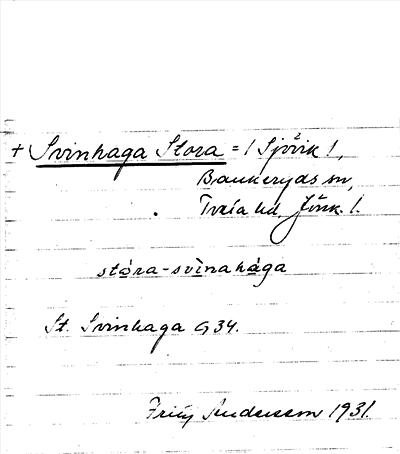 + Svinhaga Stora = / Sjövik /,
Bankeryds sn,
Tveta hd, Jönk. l.
stóra-svìnahága
St. Svinhaga G 34.
Andersson 1931.